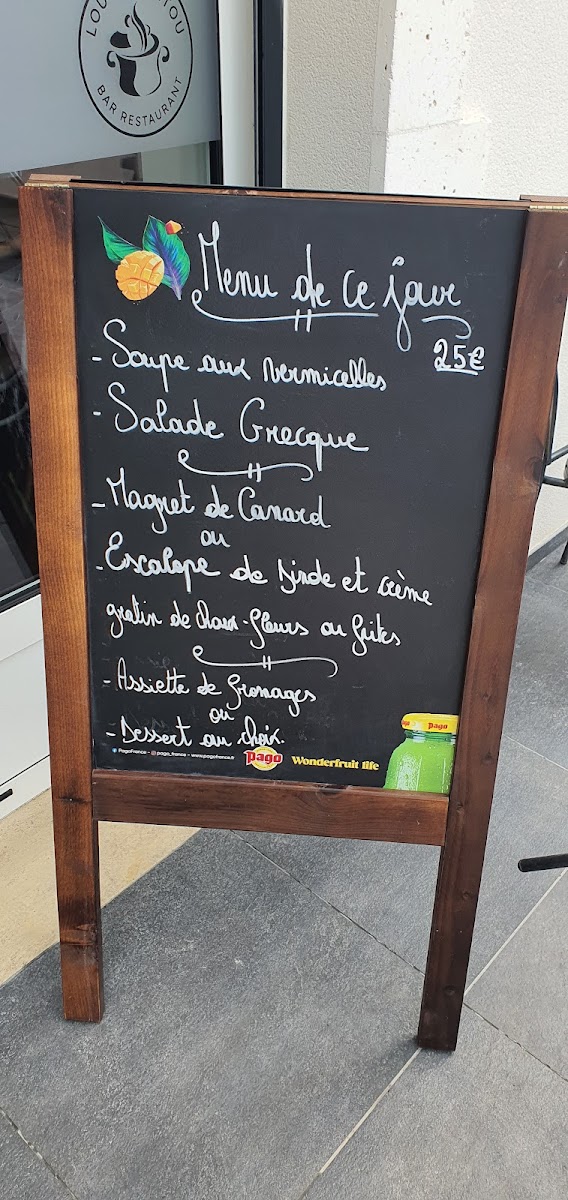 BAR RESTAURANT
Menu de ce jour
25€
- Soupe aux vermicelles
- Salade Grecque
- Magret de Canard
ou
- Escalope de dinde et crème
gratin de choux-fleurs ou frites
- Assiette de fromages
ou
- Dessert au choix.
PagoFrance - pago_france - www.pagofrance.fr
Pago
Wonderfruit life
Pago